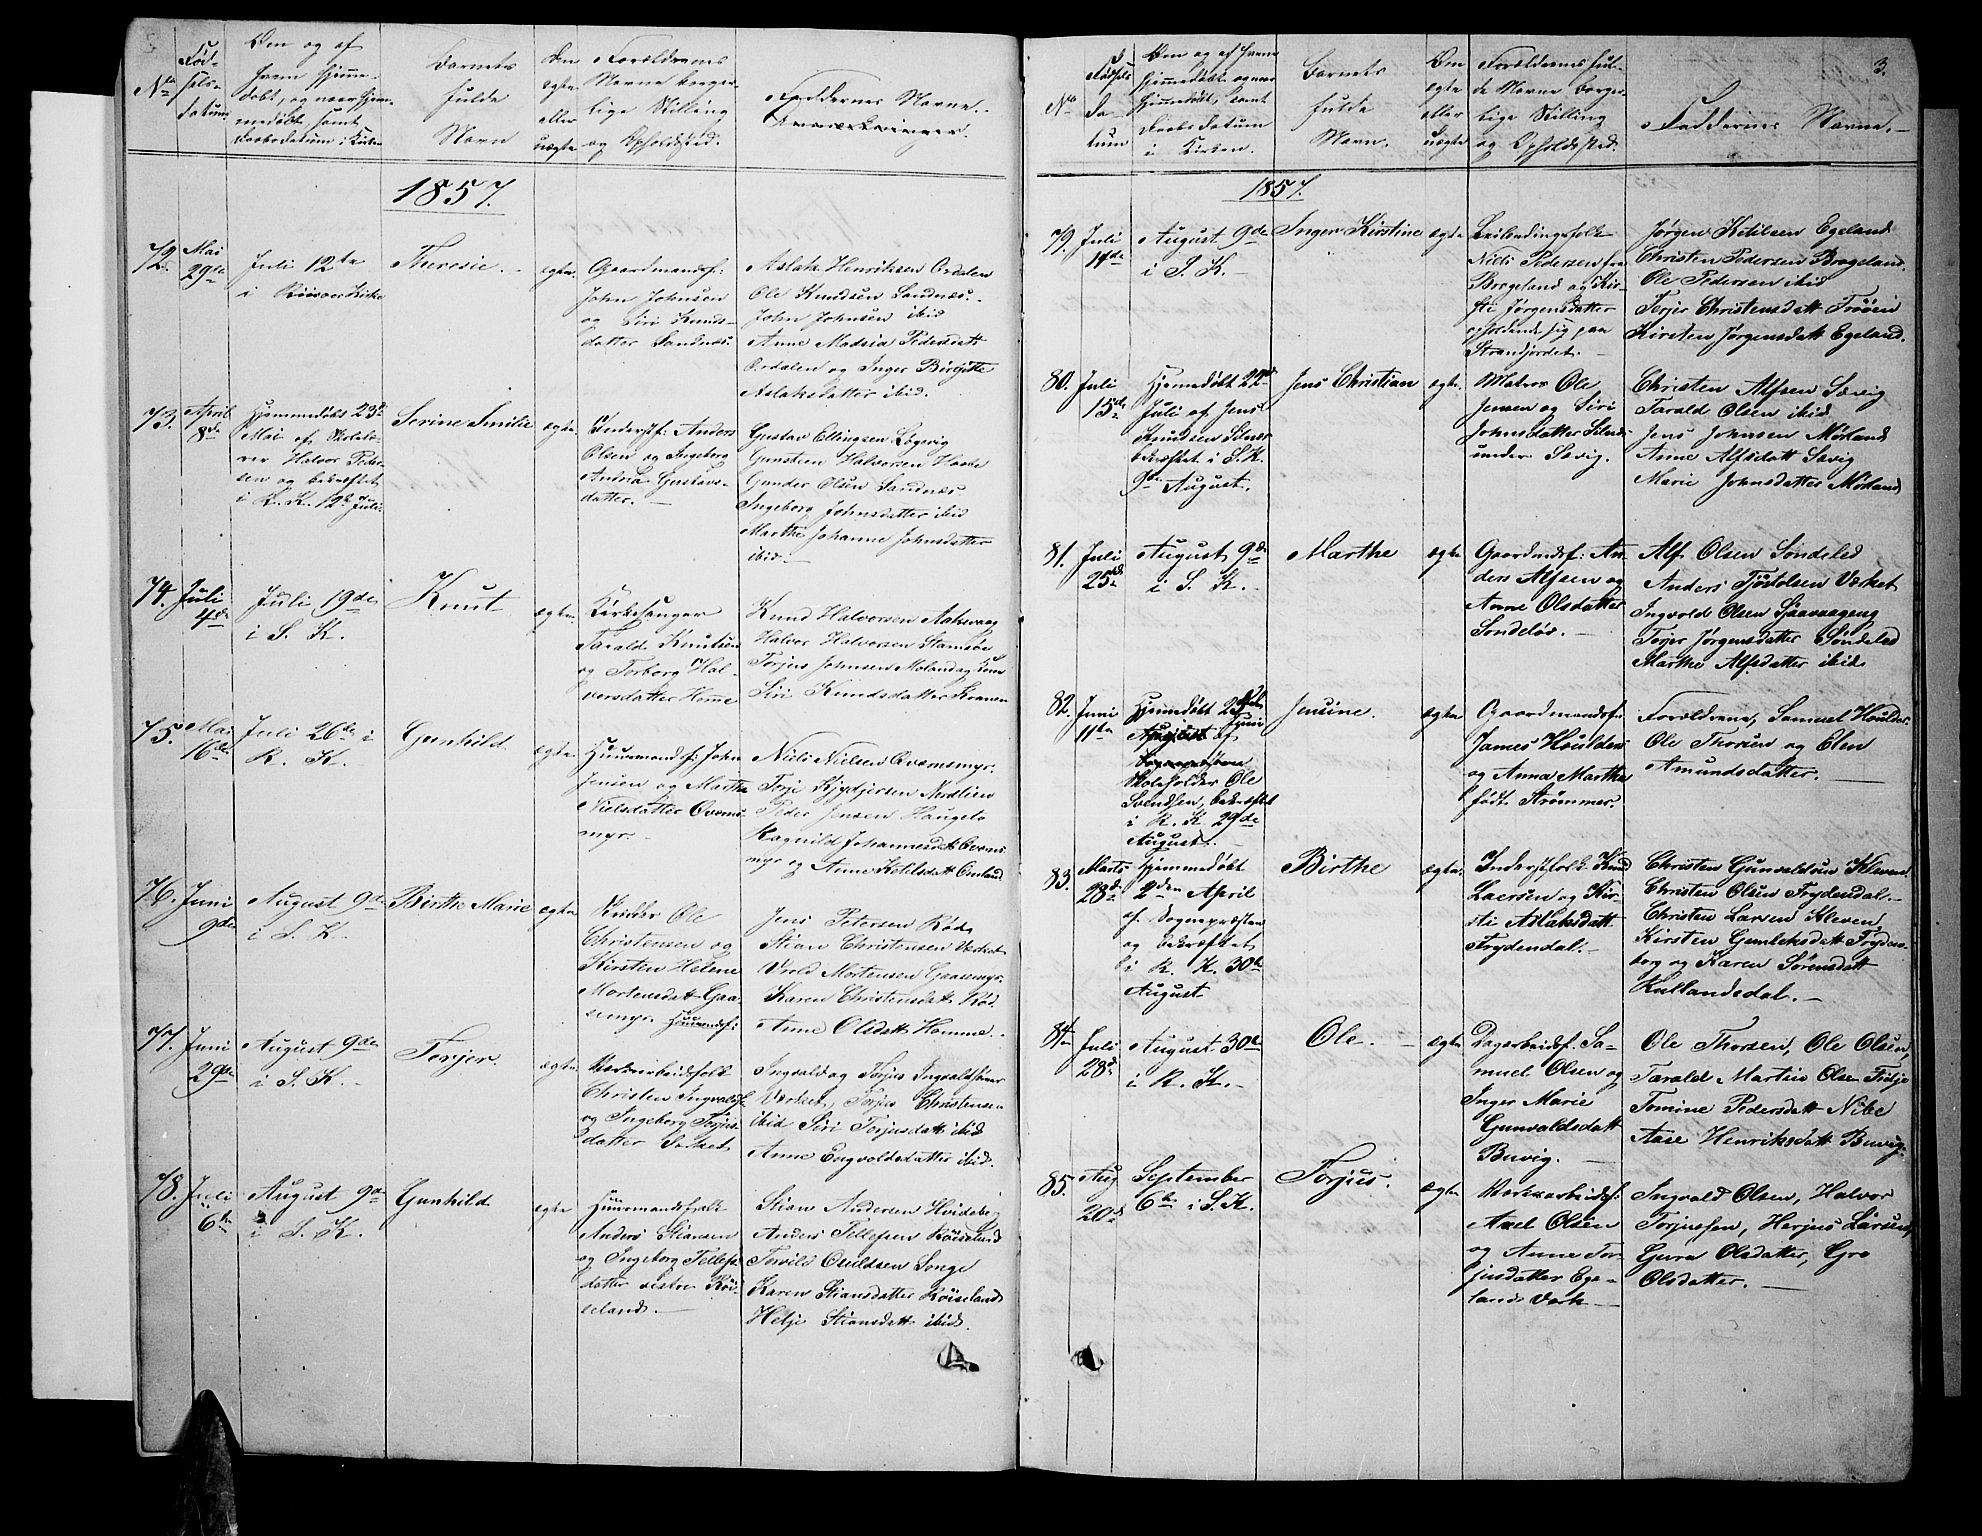 No
Fød-
sels-
datum
Den og af
hvem hjemme-
døbt, og naar hjem-
medøbt, samt
Daabsdatum i Kirken
Barnets
fulde
Navn
Om
ægte
eller
uægte
Forældrenes
Navne borger-
lige Stilling
og Opholdssted.
Faddernes Navne.
Anmærkninger.
1857.
72.
Mai
29de
Juli 12te
i Riisøer Kirke
Theresie.
ægte
Gaardmandsf:
John Johnsen
og Siri Knuds-
datter Sandnæs.
Aslak Henriksen Ørdalen
Ole Knudsen Sandnæs.
John Johnsen ibid
Anne Madsia Pedersdatt
Ørdalen og Inger Birgitte
Aslaksdatter ibid.
73.
April
8de
Hjemmedøbt 23de
Mai af Skolelæ-
rer Halvor Peder-
sen og bekræftet
i S. K. 12te Juli.
Serine Emilie
ægte
Inderstf: Anders
Olsen og Ingeborg
Andrea Gustavs-
datter.
Gustav Ellingsen Løgvig
Gunsten Halvorsen
Gunder Olsen Sandnæs
Ingeborg Johnsdatter ibid
Marthe Johanne Johnsdatter
ibid.
74.
Juli
4de
Juli 19de
i S. K.
Knut
ægte
Kirkesanger
Tarald Knutsen
og Torborg Hal-
vorsdatter Homme
Knud Halvorsen Aakvaag
Halvor Halvorsen Stamsøe
Torjus Johnsen Moland og
Siri Knudsdatter Kranen
75.
Mai
16de
Juli 26de i
R. K.
Gunhild
ægte
Huusmandsf: John
Jensen og Marthe
Nielsdatter Qværns-
myr.
Niels Nielsen Qværnsmyr.
Terje Kjydjersen Nordlien
Peder Jensen Haugelo
Ragnild Johannesdatt Qværns
myr og Anne Ketilsdatt Omland
76.
Juni
9de
August 9de
i S. K.
Birthe Marie
ægte
Skrædder Ole
Christensen og
Kirsten Helene
Mortensdatt Gaa-
semyr. Huusmandsf:
Jens Petersen Røds
Stian Christensen Værket
Vrold Mortensen Gaasemyr.
Karen Christensdatt Rød
Anne Olsdatt Homme.
77.
Juni
29de
August 9de
i S. K.
Torjer.
ægte
Værksarbeidsfolk
Christen Ingvalds.
og Ingeborg Torjus-
datter Værket
Ingvald og Torjus Ingvaldsønner
Værket, Torjus Christense-
ibid Siri Torjusdatt ibid
Anne Engvoldsdatter ibid.
78.
Juli
6te
August 9de
i S. K.
Gunhild
ægte
Huusmandsfolk
Anders Stiansen
og Ingeborg Tellefs-
datter vestre Røi-
seland.
Stian Andersen Hvideberg
Anders Tellefsen Røiseland
Torvild Osuldsen Songe
Karen Stiansdatter Røiseland
Helje Stiansdatt ibid.
3.
No
Fødsels
Da-
tum
Den og af hvem
hjemmedøbt og naar
hjemmedøbt, samt
Daabs Datum
i Kirken.
Barnets
fulde
Navn.
Om
ægte
eller
uægte
Forældrenes ful-
de Navne borger-
lige Stilling
og Opholdssted.
Faddernes Navne.
1857.
79.
Juli
14de
August 9de
i S. K.
Inger Kirstine
ægte
Leilændingsfolk
Niels Pedersen fra
Brøgeland og Kir-
sti Jørgensdatter
opholdende sig paa
Strandjordet.
Jørgen Ketilsen Egeland
Christen Pedersen Brøgeland.
Ole Pedersen ibid
Torjer Christensdatt Trøien
Kirsten Jørgensdatt Egeland.
80.
Juli
15de
Hjemmedøbt 22de
Juli af Jens
Knudsen
bekræftet i S. K.
9de August.
Jens Christian
ægte.
Matros Ole
Jensen og Siri
Johnsdatter
under Sævig.
Christen Alfsen Sævig
Tarald Olsen ibid
Jens Johnsen Mørland
Anne Alfsdatt Sævig
Marie Johnsdatter Mørland
81.
Juli
25de
August 9de
i S. K.
Marthe
ægte
Gaardmdsf: An-
ders Alfsen og
Anne Olsdatter
Søndeløv.
Alf Olsen Søndeled
Anders Tjøstolsen Værket
Ingvold Olsen Sjaavaageng
Torjer Jørgensdatter Søndeled
Marthe Alfsdatter ibid
82.
Juni
11te
Hjemmedøbt 23de
Juni
August af
Sognepræsten
Skoleholder Ole
Svendsen, bekræftet
i R. K. 29de
August.
Jensine.
ægte
Gaardmandsf:
James Houlder
og Anna Marthea
født Strømmer.
Forældrene, Samuel Houlder
Ole Thorsen og Elen
Amundsdatter.
83.
Marts
28de
Hjemmedøbt
2den April
af Sognepræsten
og bekræftet
i R. K. 30te
August
Birthe
ægte.
Inderstfolk Knud
Laersen og Kir-
sti Aslaksdatt
Frydendal.
Christen Gunvaldsen Kleven
Christen Olsen Frydendal.
Christen Larsen Kleven,
Kirsten Gunleksdatt Fryden-
borg og Karen Sørensdatt
Kullandsdal.
84.
Juli
28de
August 30te
i R. K.
Ole.
ægte
Dagarbeidsf. Sa-
muel Olsen og
Inger Marie
Gunvaldsdatt
Buvig.
Ole Thorsen, Ole Olsen,
Tarald Martin Olsen Fidje
Tomine Pedersdatt Nibe
Aase Henriksdatt Buvig.
85.
Aug
20de
September
6te i S. K.
Torjus.
ægte
Værksarbeidsf:
Axel Olsen
og Anne Tor-
jusdatter Ege-
lands Værk
Ingvald Olsen, Halvor
Torjussen, Herjus Larsen,
Guro Olsdatter, Gro
Olsdatter.